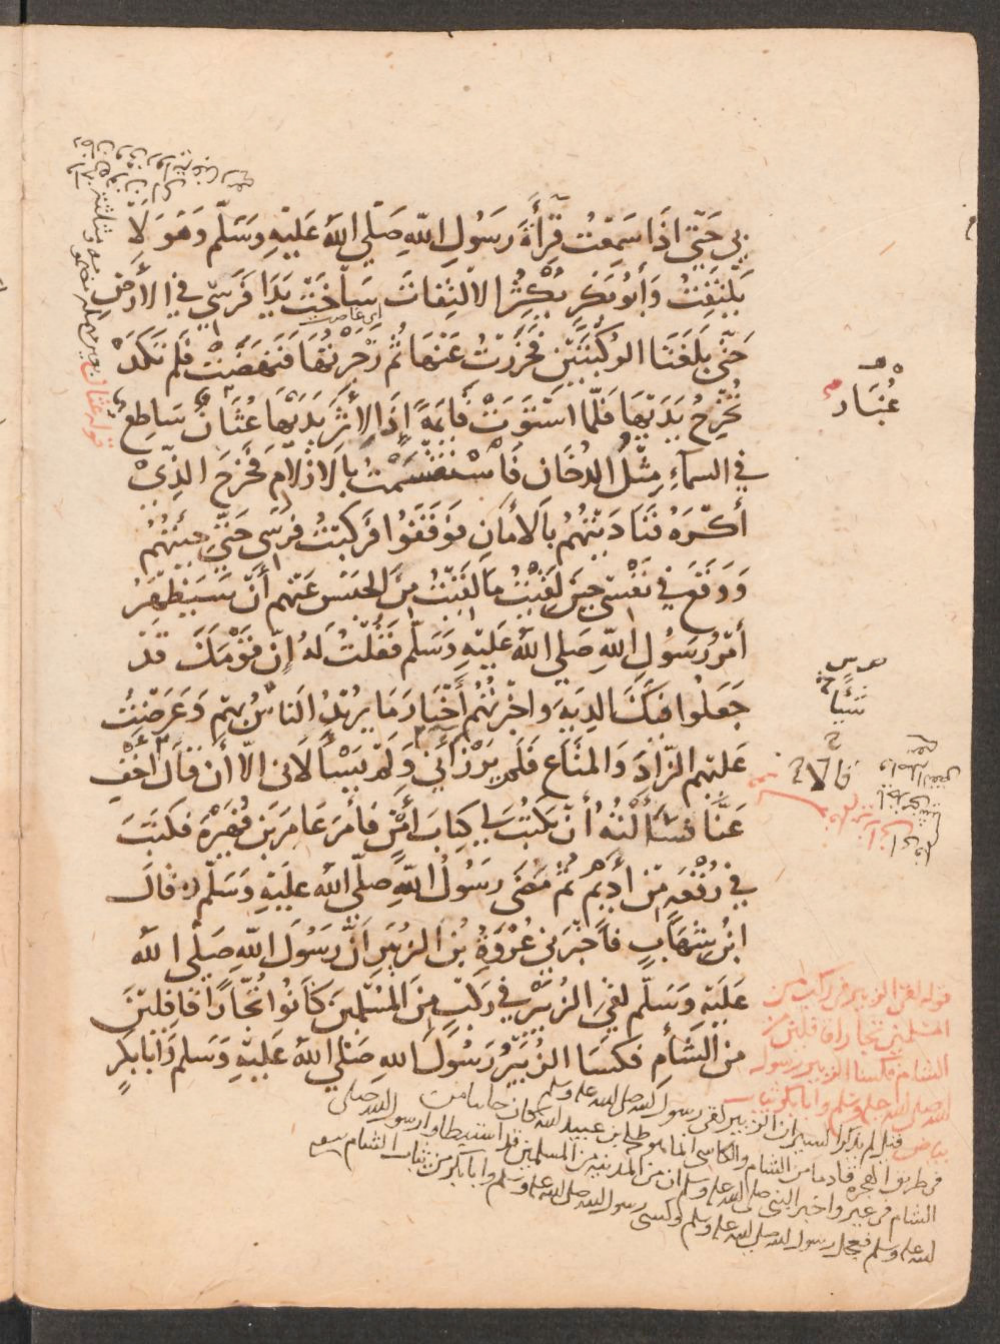 بي حَتَّى اذَا سَمِعْتُ قِرَأَةَ رَسُولِ اللَّهِ صَلَّى اللهُ عَلَيْهِ وَسَلَّمَ وَهُوَ لَا
يَلْتَفِتُ وَأَبُو بَكْرٍ يُكْثِرُ الالْتِفَاتَ سَاخَتْ يَدَا فَرَسِي فِي الأَرْضِ
اي غاصت
حَتَّى بَلَغَتَا الرُّكْبَتَيْنِ فَخَرَرْتُ عَنْهَا ثُمَّ زَجَرْتُهَا فَنَهَضَتْ فَلَمْ تَكَدْ
تُخْرِجُ يَدَيْهَا فَلَمَّا اسْتَوَتْ قَايِمَةً إِذَا لِأَثَرِ يَدَيْهَا عُثَانٌ سَاطِعٌ
في السماءِ مِثْلُ الدُّخَانِ فَاسْتَقْسَمْتُ بِالَازْلَامِ فَخَرَجَ الذِّي
أَكْرَهُ فَنَادَيْتُهُمْ بِالأَمَانِ فَوَقَفُوا فَرَكِبْتُ فَرَسِي حَتَّى جِئْتُهُمْ
وَوَقَعَ في نَفْسِي حِينَ لَقِيْتُ مَا لَقِيْتُ مِنَ الحَبْسِ عَنْهُمْ أَنْ سَيَظْهَرُ
أَمْرُ رَسُولِ اللَّهِ صَلى اللهُ عَلَيْهِ وَسَلَّمَ فَقُلْتُ لَهُ إِنَّ قَوْمَكَ قَدْ
جَعَلُوا فِيكَ الدِيَةَ وَاخْبَرْتُهُمْ أَخْبَارَ مَا يُرِيْدُ النَّاسُ بِهِمْ وَعَرَضْتُ
عَلَيْهِم الزَّادَ وَالمَتَاعَ فَلَمْ يَرْزَأَنِي وَلَمْ يَسْأَلَانِي الَّا أَن قَالَ أَخْفِ
عَنَّا فَسَأَلْتُهُ أَنْ يَكْتُبَ لي كِتَابَ أَمْنٍ فَأَمَرَ عَامِرَ بَن فُهَيْرَةَ فَكَتَبَ
في رُقْعَةٍ مِنْ أَدِيْمٍ ثُمَّ مَضَى رَسُولُ اللَّهِ صَلَّى الله عَلَيْهِ وَسَلَّم قَالَ
ابْنُ شِهَابٍ فَأَخْبَرَنِي عُرْوَةُ بْنُ الزُبَيْرِ أَنَّ رَسُولَ اللَّهِ صَلَّى اللهُ
عَلَيْهِ وَسَلَّمَ لَقِيَ الزُبَيْرَ في رَكْبٍ مِنَ المُسْلِمِينَ كَانُوا تُجَّارًا قَافِلِيْنَ
مِنَ الشَأْمِ فَكَسَا الزُبَيْرُ رَسُولَ اللهِ صَلى اللهُ عَلَيْهِ وَسَلم وَأَبَا بَكْرٍ
غُبَار
شيئا
قَالَا
قوله عثان
قوله لقي الزبير في ركب من
المسلمين تجارا قافلين من
الشام فكسا الزبير رسول
الله صلى الله عليه وسلم وابا بكر ثياب
بياض قيل لم يذكر اهل السير ان الزبير لقي رسول الله صلى الله عليه وسلم
في طريق الهجرة قادما من الشام والكاسي انما هو طلحة بن عبيد الله كان جاء من
الشام في عير واخبر النبي صلى الله عليه وسلم ان من المدينة من المسلمين قد استبطاوا رسول الله صلى
الله عليه وسلم فعجل رسول الله صلى الله عليه وسلم وكسى رسول الله صلى الله عليه وسلم وابا بكر من ثياب الشام